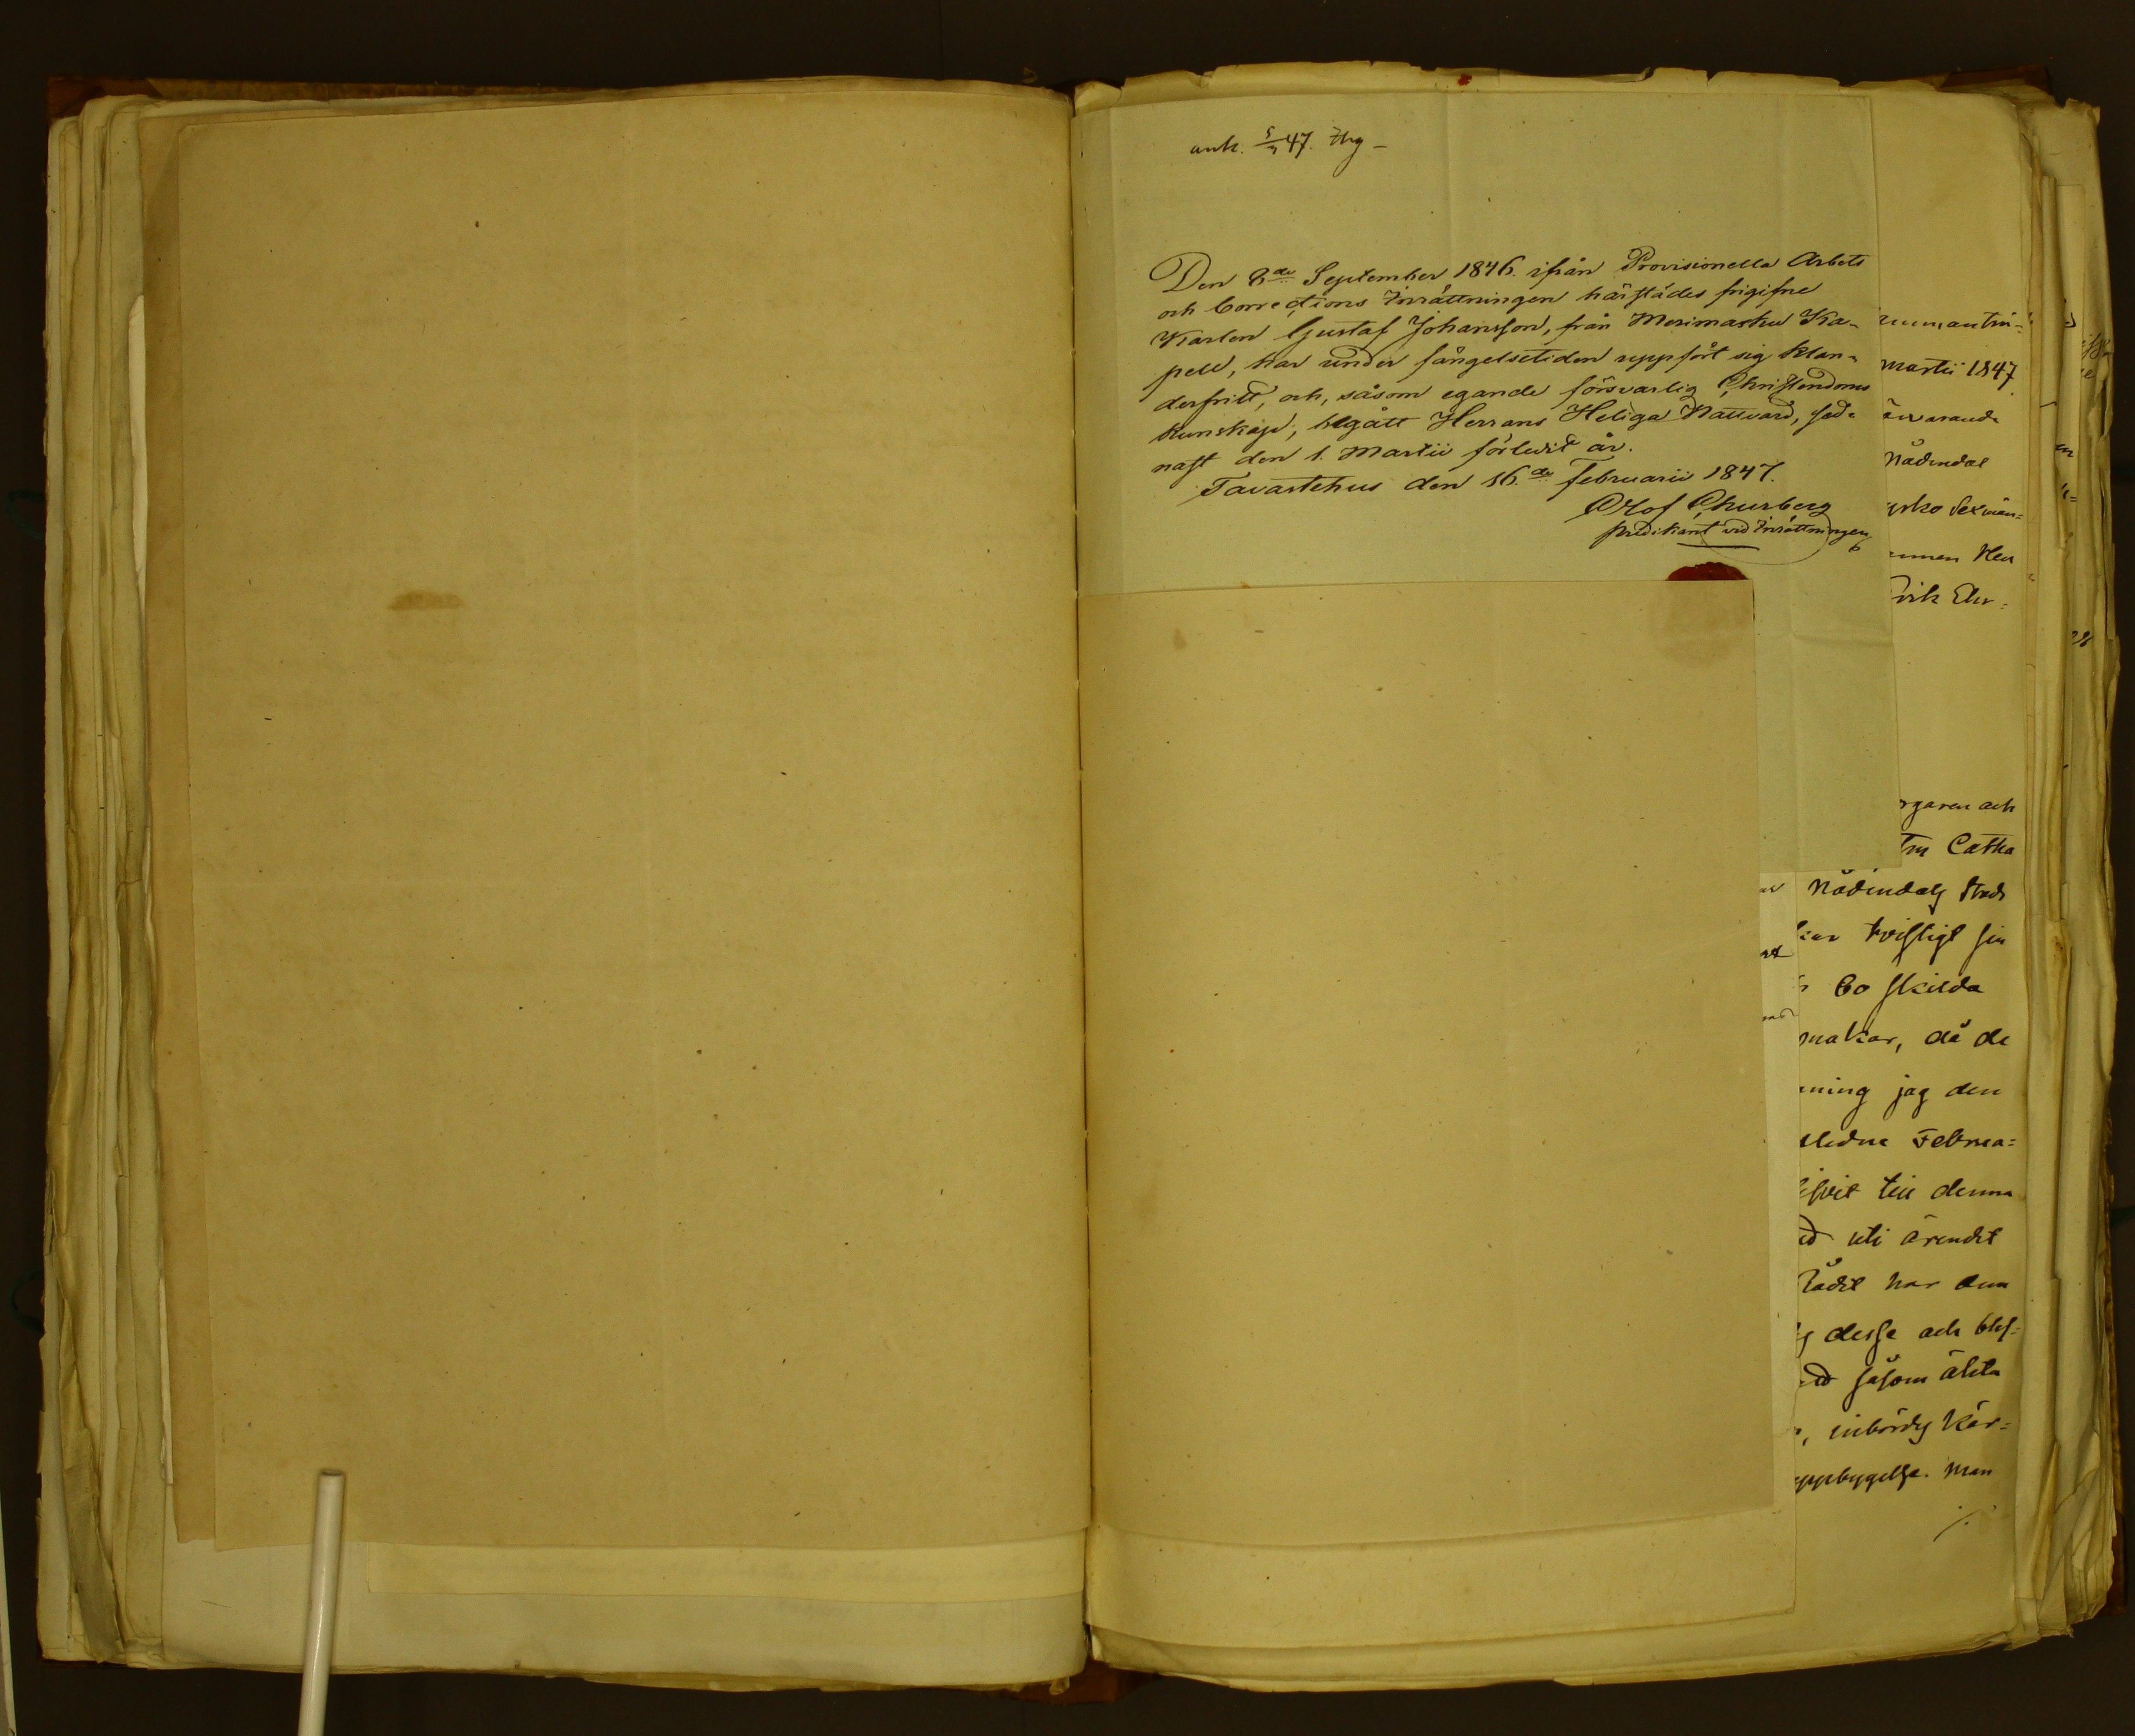 ank. 47.
Den 8de September 1846. ifrån Provisionella Arbets
och Corrections Inrättningen härstädes frigifne
Karlen Gustaf Johansson, från Merimasku Ka-
pell, har under fängelsetiden uppfört sig klan-
derfritt, och, såsom egande försvarlig Christendoms
kunskap, begått Herrans Heliga Nattvard, sed-
nast den 1. Martii förledit år.
Tavastehus den 16.de Februarii 1847.
Olof Churberg
predikant vid Inrättningen
Martii 1847
Nådendal
rgaren och
Catha
Nådendals Stads
tvistigt sin
bo skilda
makar, då de
ning jag den
Februa=
till denna
uti ärendet
har
desse och
såsom äkta
, inbördes kär=
uppbygelse. Man
./.